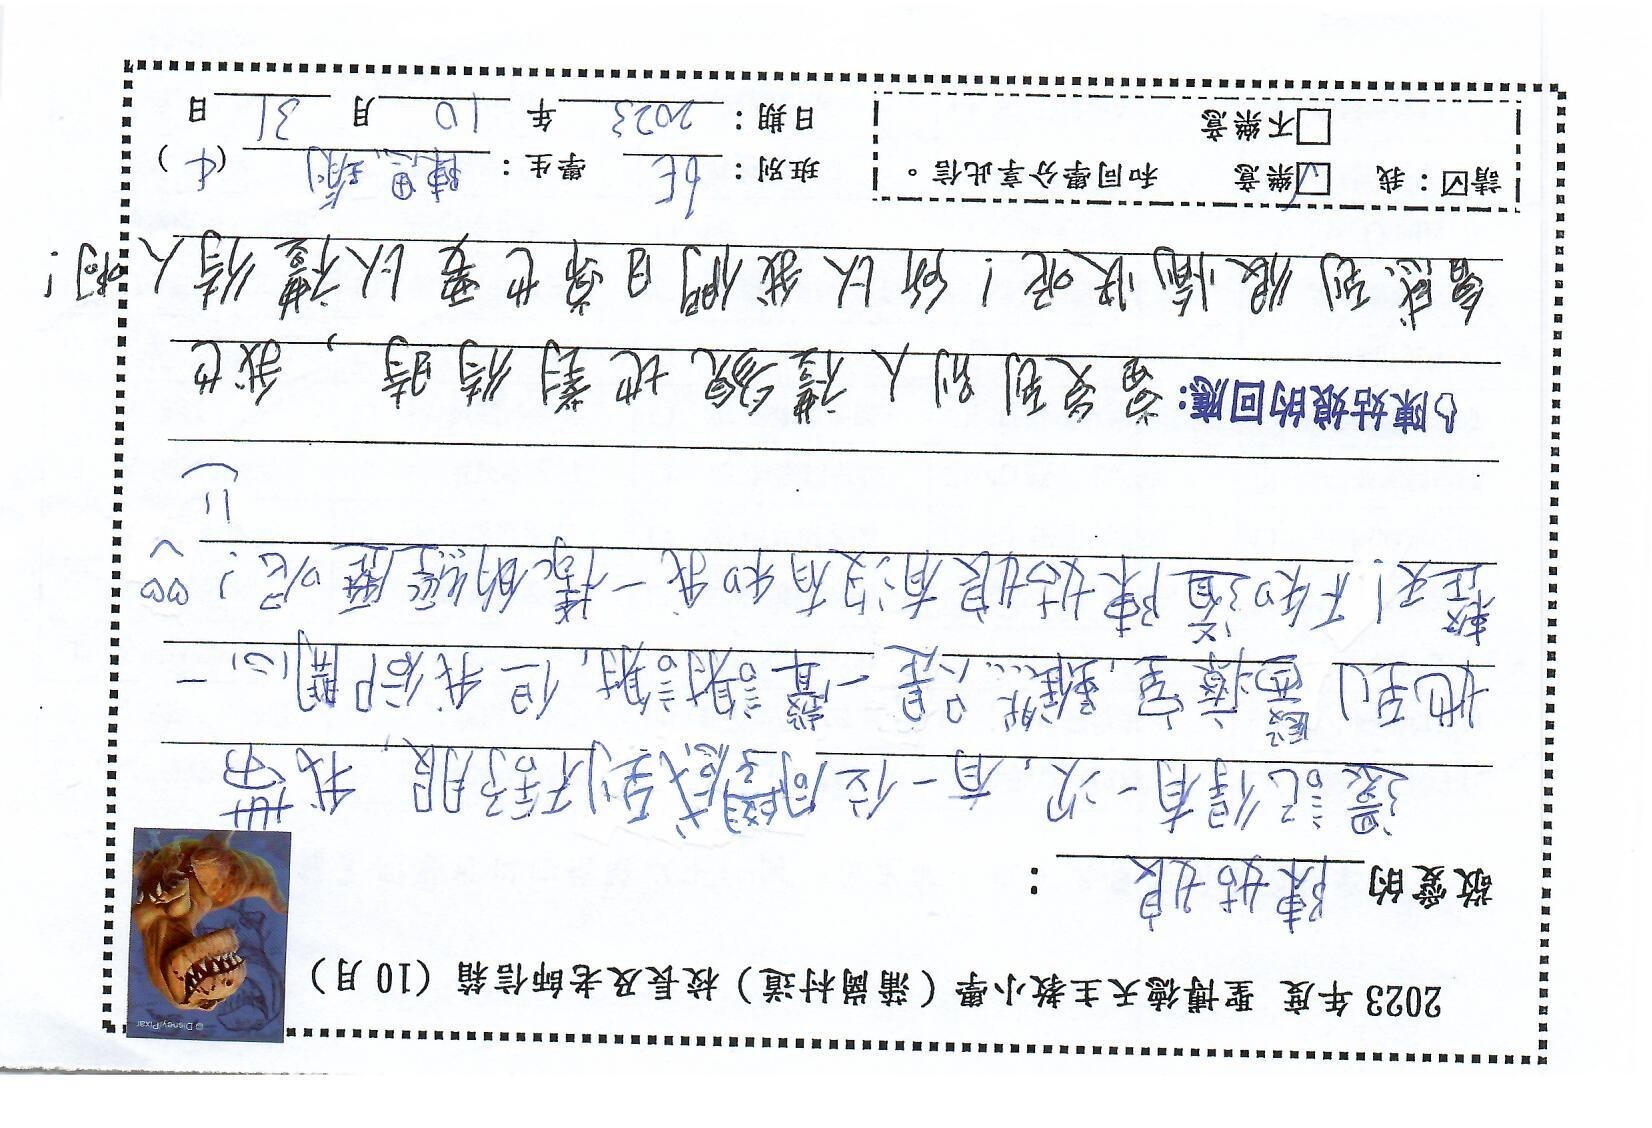 2023 年度 聖博德天主教小學（蒲崗村道）校長及老師信箱（10 月）
© Disney/Pixar
敬愛的 陳姑娘 ：
還記得有一次，有一位同學感到不舒服，我帶
他到醫療室，雖然只是一聲謝謝，但我卻開心一
整天！不知道陳姑娘有沒有和我一樣的經歷呢！
陳姑娘的回應：當受到別人禮貌地對待時，我也
會感到很愉快呢！所以我們日常也要以禮待人啊！
請☑：我 ☑樂意 和同學分享此信。
□不樂意
班別： 6E 學生： 陳思 （4）
日期： 2023 年 10 月 31 日